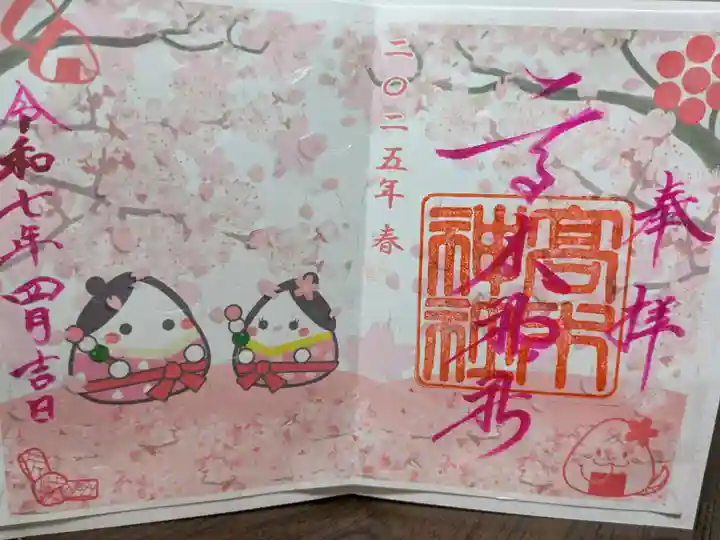 奉拝
高木神社
高木
神社
二〇二五年 春
令和七年 四月吉日